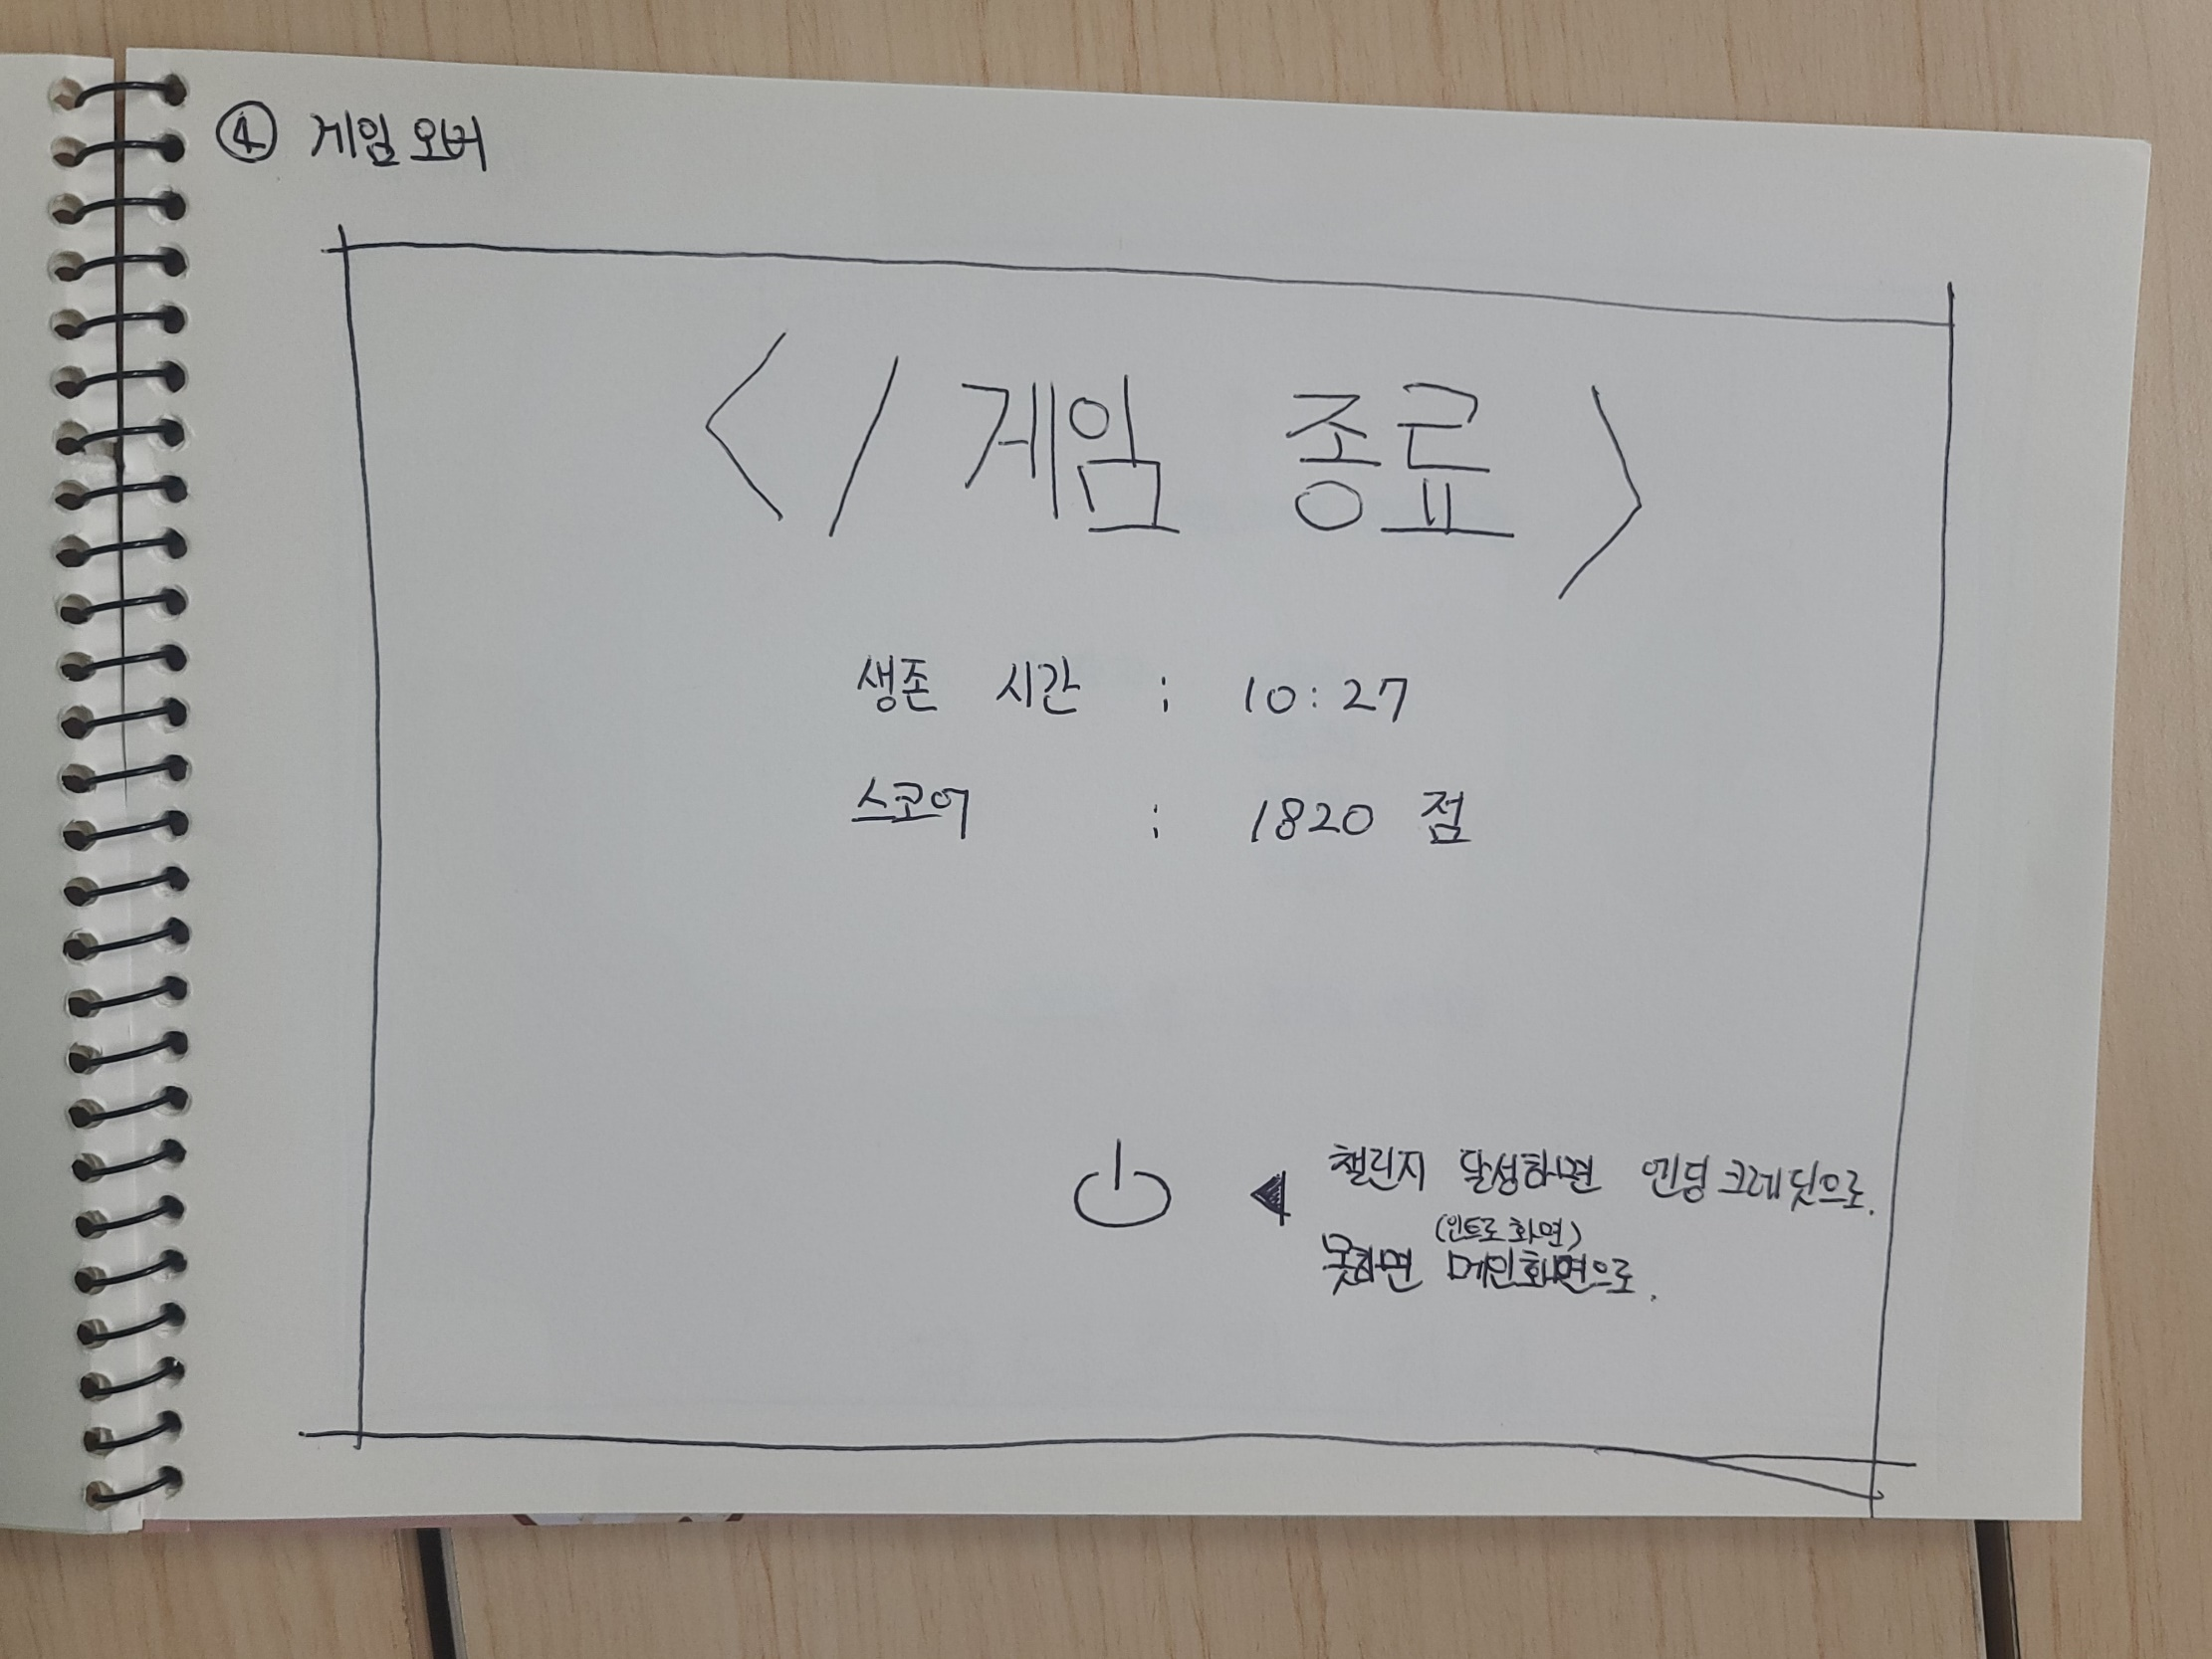 ④ 게임오버
</ 게임 종료 >
생존 시간 : 10:27
스코어 : 1820 점
챌린지 달성하면 엔딩크레딧으로.
(인트로 화면)
못하면 메인화면으로.